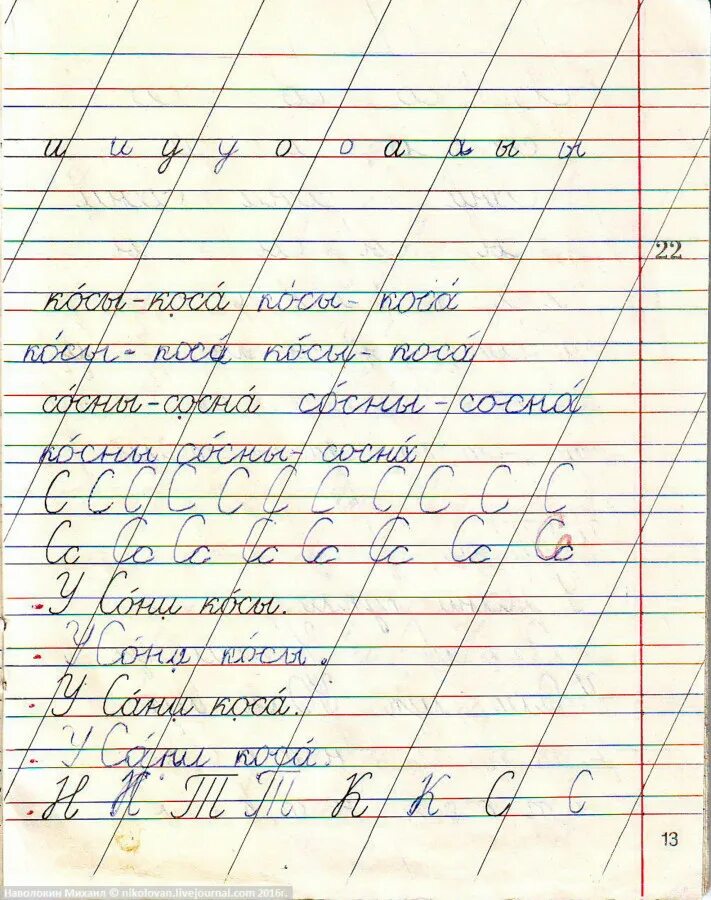 и и у у о о а а ы ы
22
ко́сы-коса́ ко́сы- коса́
ко́сы- коса́ ко́сы- коса́
со́сны-сосна́ со́сны-сосна́
ко́сны со́сны- сосна́
С С С С С С С С С С С
Сс Сс Сс Сс Сс Сс Сс Сс
У Со́ни ко́сы.
У Со́ни ко́сы.
У Са́ни коса́.
У Са́ни коса́.
Н Н Т Т К К С С
13
Наволокин Михаил © nikolovan.livejournal.com 2016г.